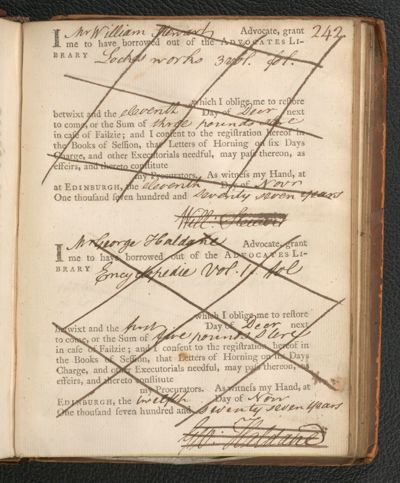 242
I Mr William Stewart Advocate, grant
me to have borrowed out of the ADVOCATES LI-
BRARY Lockes works 3 vol. fol.
which I oblige me to reſtore
betwixt and the eleventh Day of Decr next
to come, or the Sum of three pounds
in caſe of Failzie; and I conſent to the regiſtration hereof in
the Books of Seſſion, that Letters of Horning on ſix Days
Charge, and other Executorials needful, may paſs thereon, as
effeirs, and thereto conſtitute
my Procurators. As witneſs my Hand, at
at EDINBURGH, the eleventh Day of Novr
One thouſand ſeven hundred and seventy seven years
Will: Stewart
I Mr George Haldane Advocate, grant
me to have borrowed out of the ADVOCATES LI-
BRARY Encyclopedie Vol. 11 fol
which I oblige me to reſtore
betwixt and the first Day of Decr next
to come, or the Sum of five pounds Ster
in caſe of Failzie; and I conſent to the regiſtration hereof in
the Books of Seſſion, that Letters of Horning on ſix Days
Charge, and other Executorials needful, may paſs thereon, as
effeirs, and thereto conſtitute
my Procurators. As witneſs my Hand, at
EDINBURGH, the twelfth Day of Novr
One thouſand ſeven hundred and seventy seven years
Geo. Haldane